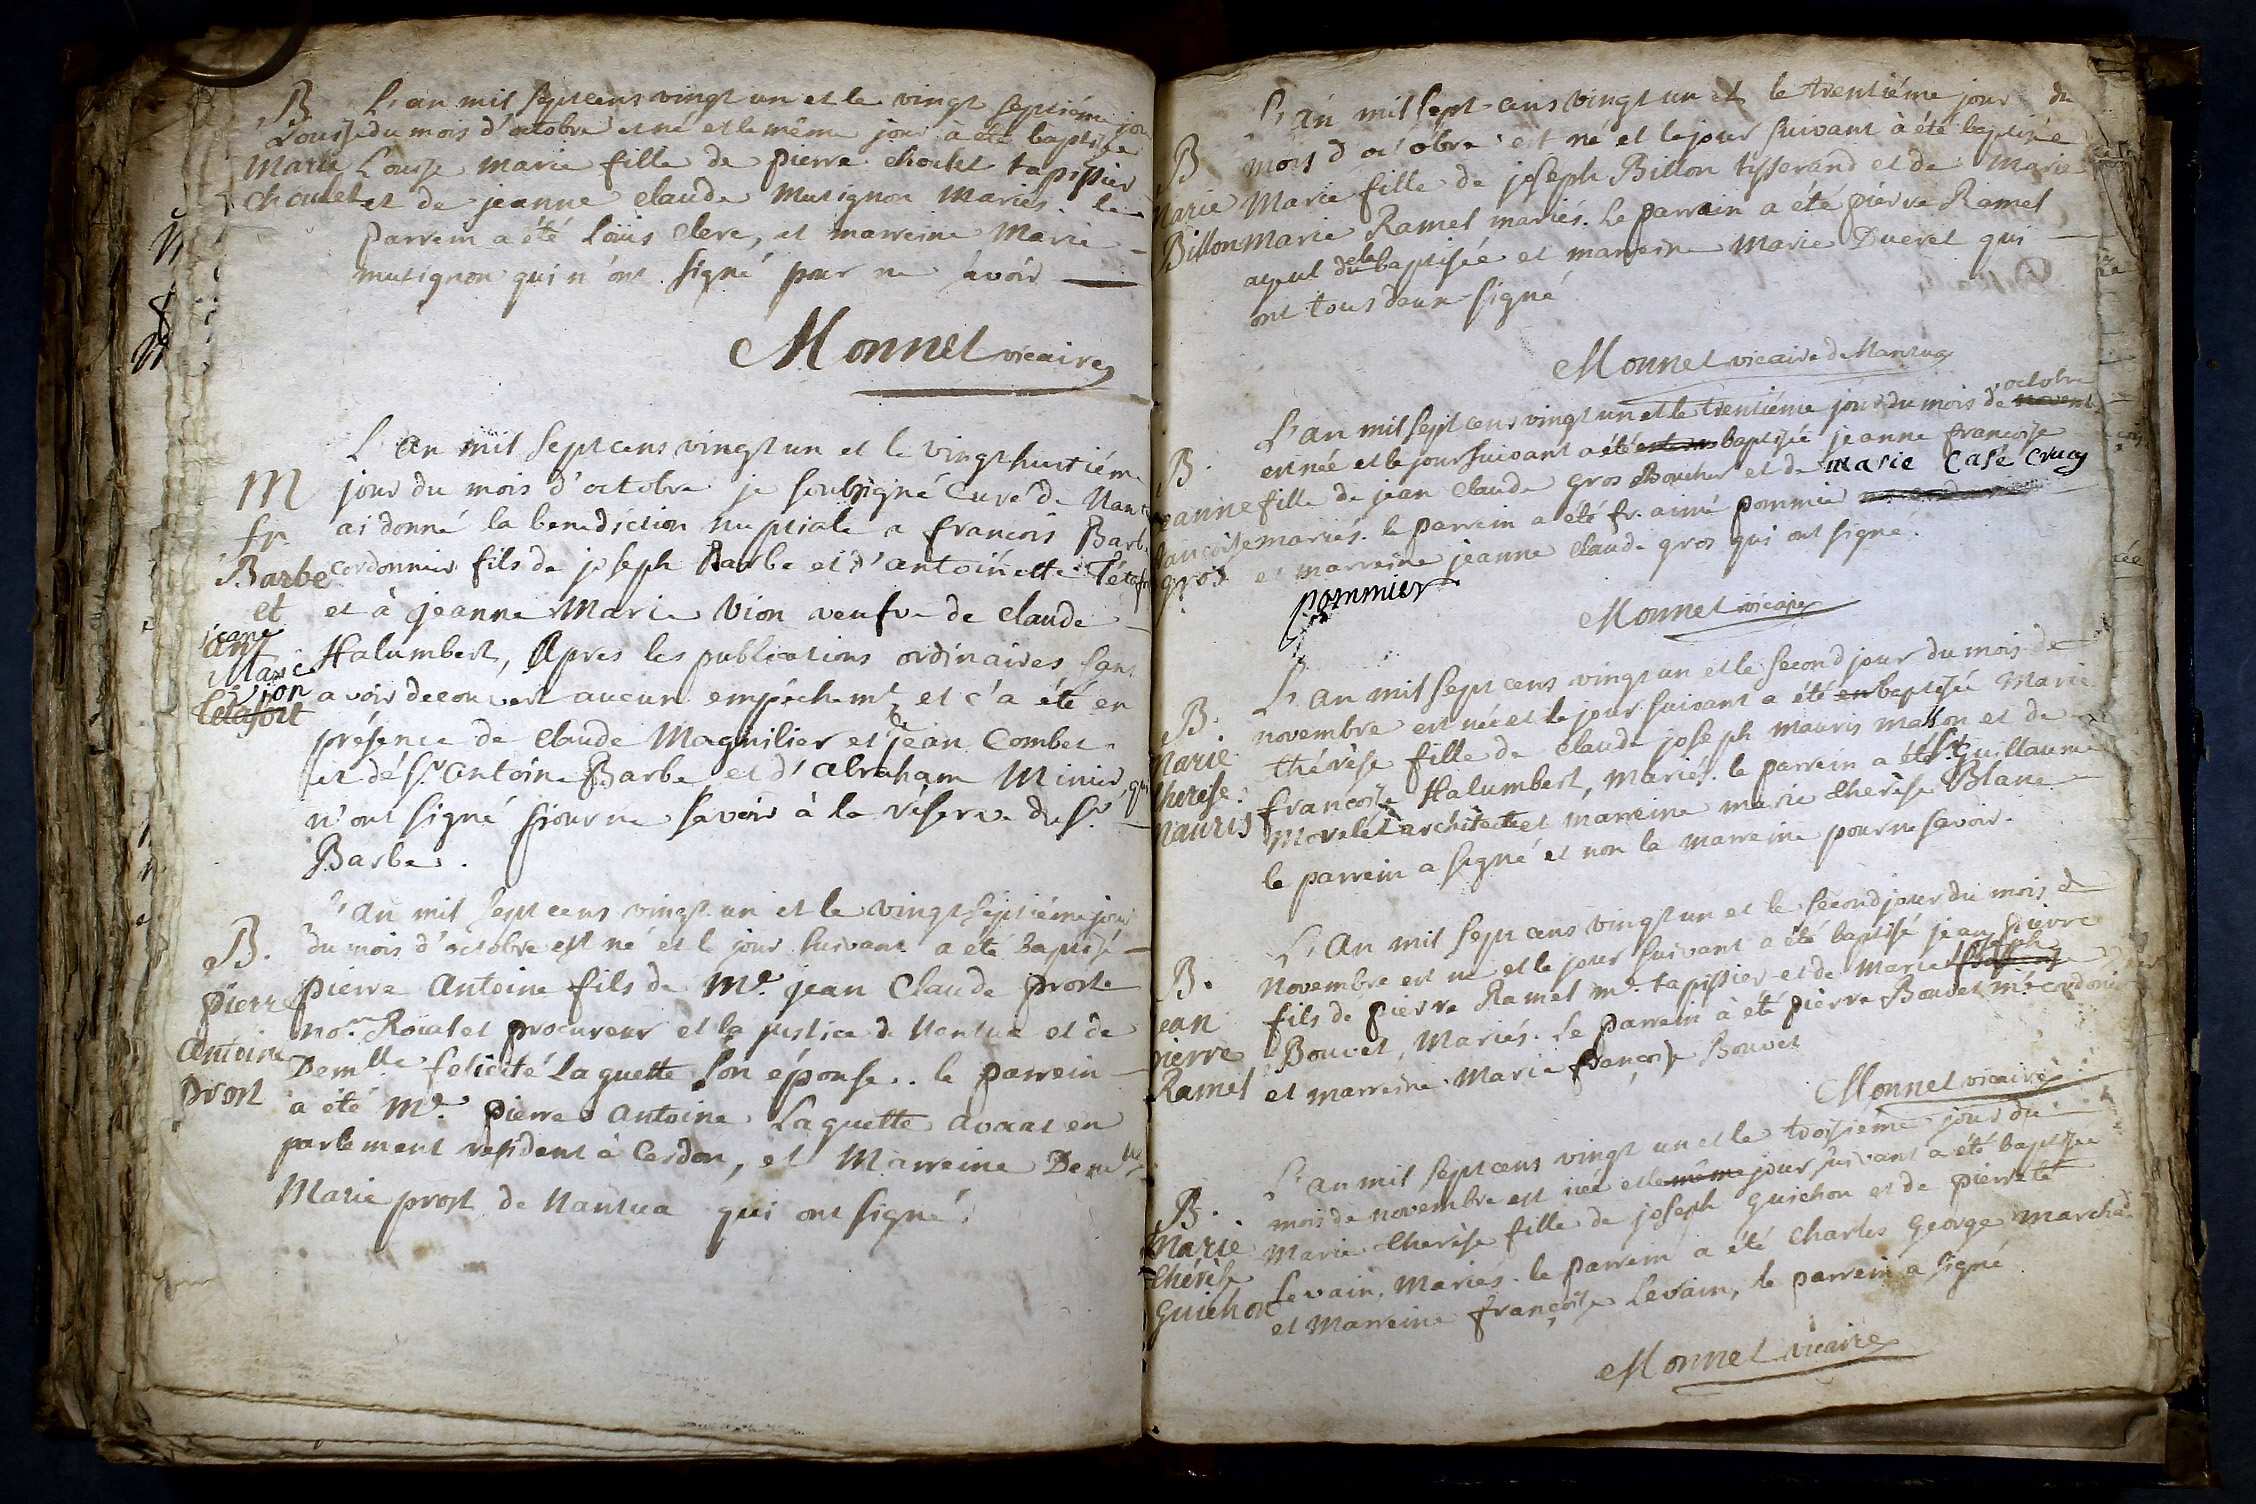 B
Louise
Marie
Choulet
L'an mil sept cens vingt un et le vingt septiéme jour
du mois d'octobre est né et le même jour à été baptisée
Louise Marie fille de pierre Choulet tapissier
et de jeanne claude Mutignon mariés. le
parrein a été Loüis Clerc, et marreine Marie
mutignon qui n'ont signé pour ne savoir
Monnet vicaire
M
fr.
Barbe
et
jeane
Marie
Vion
L'an mil sept cens vingt un et le vingt huitiéme
jour du mois d'octobre je soubsigné Curé de Nantua
ai donné la benediction nuptiale a francois Barbe
cordonnier fils de joseph Barbe et d'antoinette
et à jeanne Marie Vion veufve de claude
Halumbert, Apres les publications ordinaires sans
avoir decouvert aucun empêchemt. et c'a été en
présence de claude Magnilier et de jean Combet
et de Sr. antoine Barbe et d'abraham Minier, qui
n'ont signé pour ne savoir à la réserve du Sr.
Barbe.
B.
pierre
antoine
prost
L'an mil sept cens vingt un et le vingt septiéme jour
du mois d'octobre est né et le jour suivant a été baptisé
pierre Antoine fils de Me. jean Claude prost
no.re Roial et procureur et la justice de Nantua et de
Demlle. felicité Laguette son épouse.. le parrein
a été Me. pierre antoine Laguette avocat en
parlement resident à Cerdon, et Marreine Demlle
Marie prost de Nantua qui ont signé.
B
Marie
Billon
L'an mil sept-cens vingt un et le trentiéme jour du
mois d'octobre est né et le jour suivant à été baptisée
Marie fille de joseph Billon tisserand et de Marie
Marie Ramel mariés. Le parrain a été piérre Ramel
ayeul de la baptisée et marreine Marie Ducret qui
ont tous deux signé
Monnet vicaire de Nantua
B.
jeanne
françoise
gros
L'an mil sept cens vingt un et le trentiéme jour du mois de octobre
est née et le jour suivant a été baptisée jeanne francoise
fille de jean claude gros Boucher et de marie Casé Crucy
mariés. le parrein a été fr. aimé pommier
et marreine jeanne claude gros qui ont signé.
pommier
Monnet vicaire
B.
Marie
therese
Mauris
L'an mil sept cens vingt un et le second jour du mois de
novembre est née et le jour suivant a été baptisée Marie
thérèse fille de claude joseph Mauris mason et de
françoise Halumbert, mariés. le parrein a été Sr. guillaume
Morelet architecte et marreine marie therèse Blanc
le parrein a signé et non la marreine pour ne savoir.
B.
jean
pierre
Ramel
L'An mil sept cens vingt un et le second jour du mois de
Novembre est né et le jour suivant a été baptisé jean pierre
fils de pierre Ramel me. tapissier et de Marie
Bouvet, Mariés. Le parrein à été pierre Bouvet me. cordonier
et marreine Marie françoise Bouvet
Monnet vicaire
B.
Marie
thérèse
Guichon
L'an mil sept cens vingt un et le troisiéme jour du
mois de novembre est née et le même jour suivant a été baptisée
Marie therèse fille de joseph Guichon et de pierrete
Levain, Mariés. le parrein a été Charles George Marchad.
et Marreine françoise Levain, le parrein a signé
Monnet vicaire